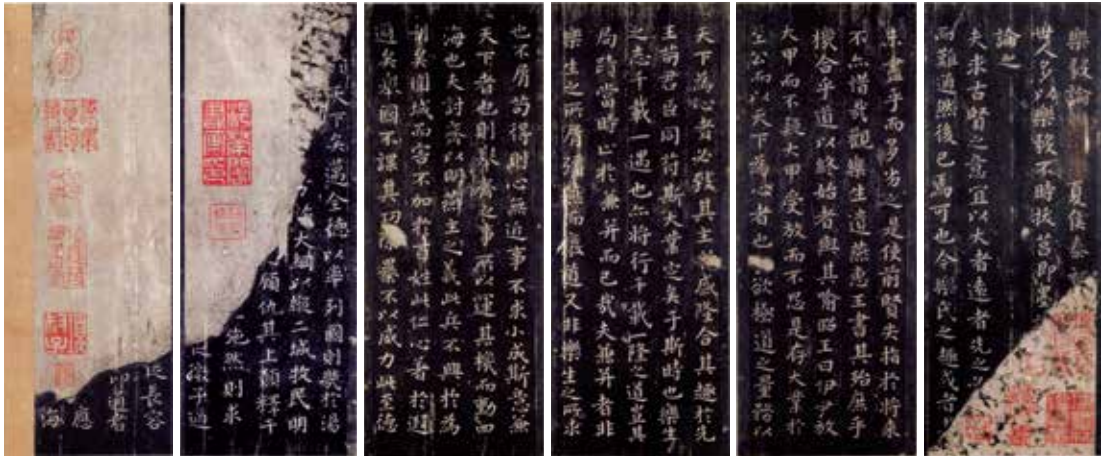 樂毅論 夏侯泰
世人多以樂毅不時拔莒即墨
論之
夫求古賢之意宜以大者遠者先之必
而難通然後已焉可也今樂氏之趣或者
未盡乎而多劣之是使前賢失指於將來
不亦惜哉觀樂生遺燕惠王書其殆庶乎
機合乎道以終始者與其喻昭王曰伊尹放
大甲而不疑大甲受放而不怨是存大業於
至公而以天下為心者也夫欲極道之量務以
天下為心者必致其主於盛隆合其趣於先
王苟君臣同符斯大業定矣于斯時也樂生
之志千載一遇也亦將行千載一隆之道豈其
局蹟當時止於兼并而已哉夫兼并者非
樂生之所屑彊燕而廢道又非樂生之所求
也不屑苟得則心無近事不求小成斯意兼
天下者也則舉齊之事所以運其機而動四
海也夫討齊以明燕主之義此兵不興於為
利矣圍城而害不加於百姓此仁心著於遐
邇矣舉國不謀其功除暴不以威力此至德
於天下矣邁全德以率列國則幾於湯
大綱以縱二城牧民明
顧仇其上願釋干
施然則求
微子適
長容
應
海